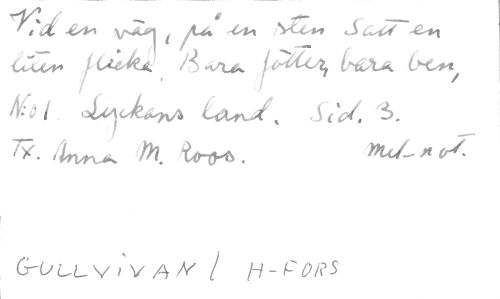 Vid en väg, på en sten satt en
liten flicka. Bara fötter, bara ben,
N:o 1. Lyckans land. Sid. 3.
Tx. Anna M. Roos. mel-not.
GULLVIVAN / H-FORS